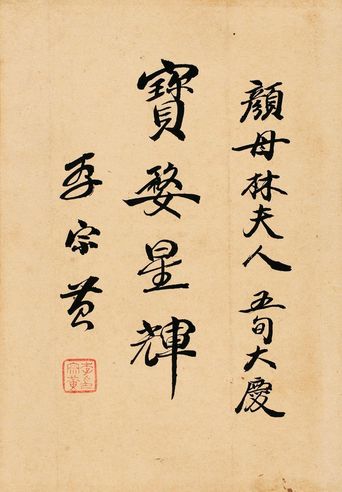 顏母林夫人五旬大慶
寶婺星輝
李宗黃
李宗黃